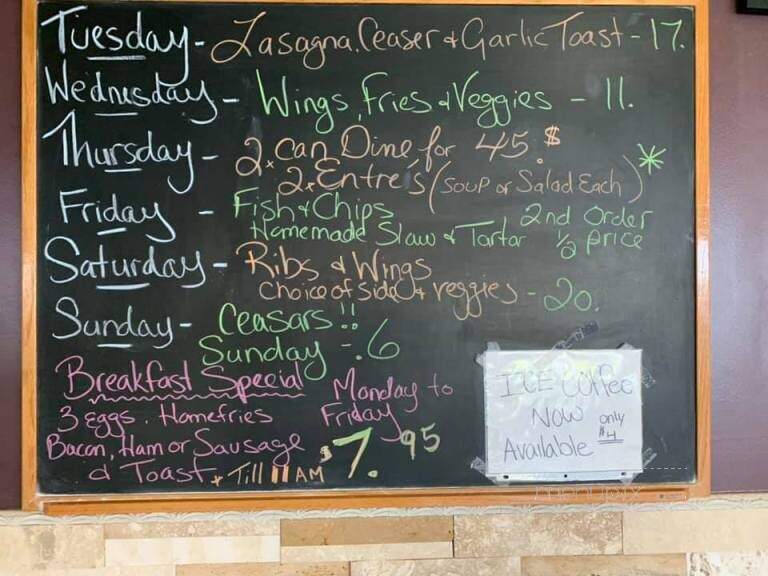 Tuesday - Lasagna, Ceaser & Garlic Toast - 17.
Wednesday - Wings, Fries & Veggies - 11.
Thursday - 2 Can Dine for 45.$
2 Entre's (Soup or Salad Each) *
Friday - Fish & Chips 2nd Order
Homemade Slaw & Tartar 1/2 price
Saturday - Ribs & Wings
Choice of Side & veggies - 20.
Sunday - Ceasars!!
Sunday - .6
Breakfast Special Monday to
Friday
3 eggs. Homefries
Bacon, Ham or Sausage $7.95
& Toast * Till 11 AM
ICE Coffee
Now only
Available $4